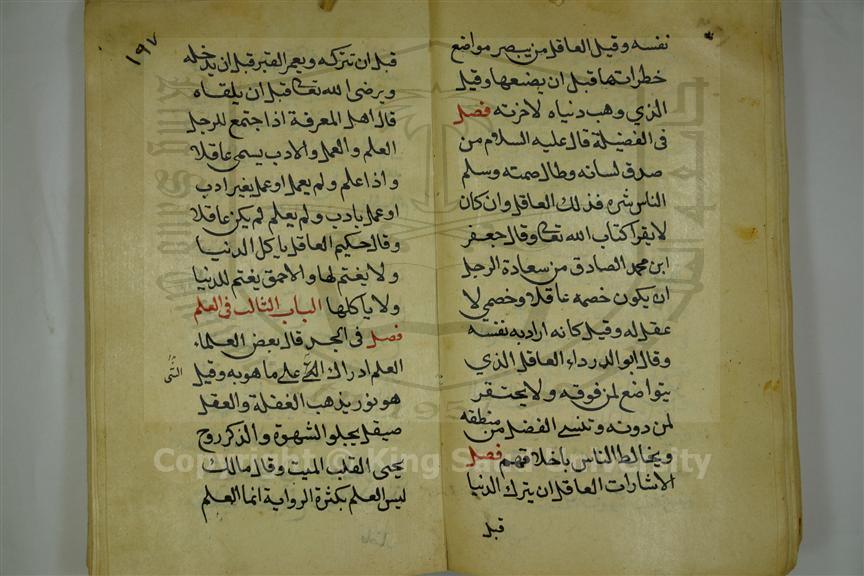 نفسه وقيل العاقل من يبصر مواضع
خطراتها قبل ان يضعها وقيل
الذي وهب دنياه لاخرته فصل
فى الفضيلة قال عليه السلام من
صدق لسانه وطال صمته وسلم
الناس شره فذلك العاقل وان كان
لا يقرا كتاب الله تعا وقال جعفر
ابن محمد الصادق من سعادة الرجل
ان يكون خصمه عاقلا وخصمي لا
عقل له وقيل كانه اراد به نفسه
وقال ابو الدرداء العاقل الذي
يتواضع لمن فوقه ولا يحتقر
لمن دونه الفضل من منطقه
ويخالط الناس باخلاقهم فصل
الاشارات العاقل ان يترك الدنيا
قبل
١٩٧
قبل ان تتركه ويعمر القبر قبل ان يدخله
ويرضى الله تعا قبل ان يلقاه
قال اهل المعرفة اذا جتمع للرجل
العلم والعمل والادب يسمى عاقلا
واذا علم ولم يعمل او عمل بغير ادب
او عمل بادب ولم يعلم لم يكن عاقلا
وقال حكيم العاقل ياكل الدنيا
ولا يغتم لها والاحمق يغتم للدنيا
ولا ياكلها الباب الثالث فى العلم
فصل فى الحد قال بعض العلماء
العلم ادراك على ما هو به وقيل
الشئ
هو نور يذهب الغفلة والعقل
صيقل يجلو الشهوة والذكر روح
يحيى القلب الميت وقال مالك
ليس العلم بكثرة الرواية انما العلم
Copyright © King Saud University